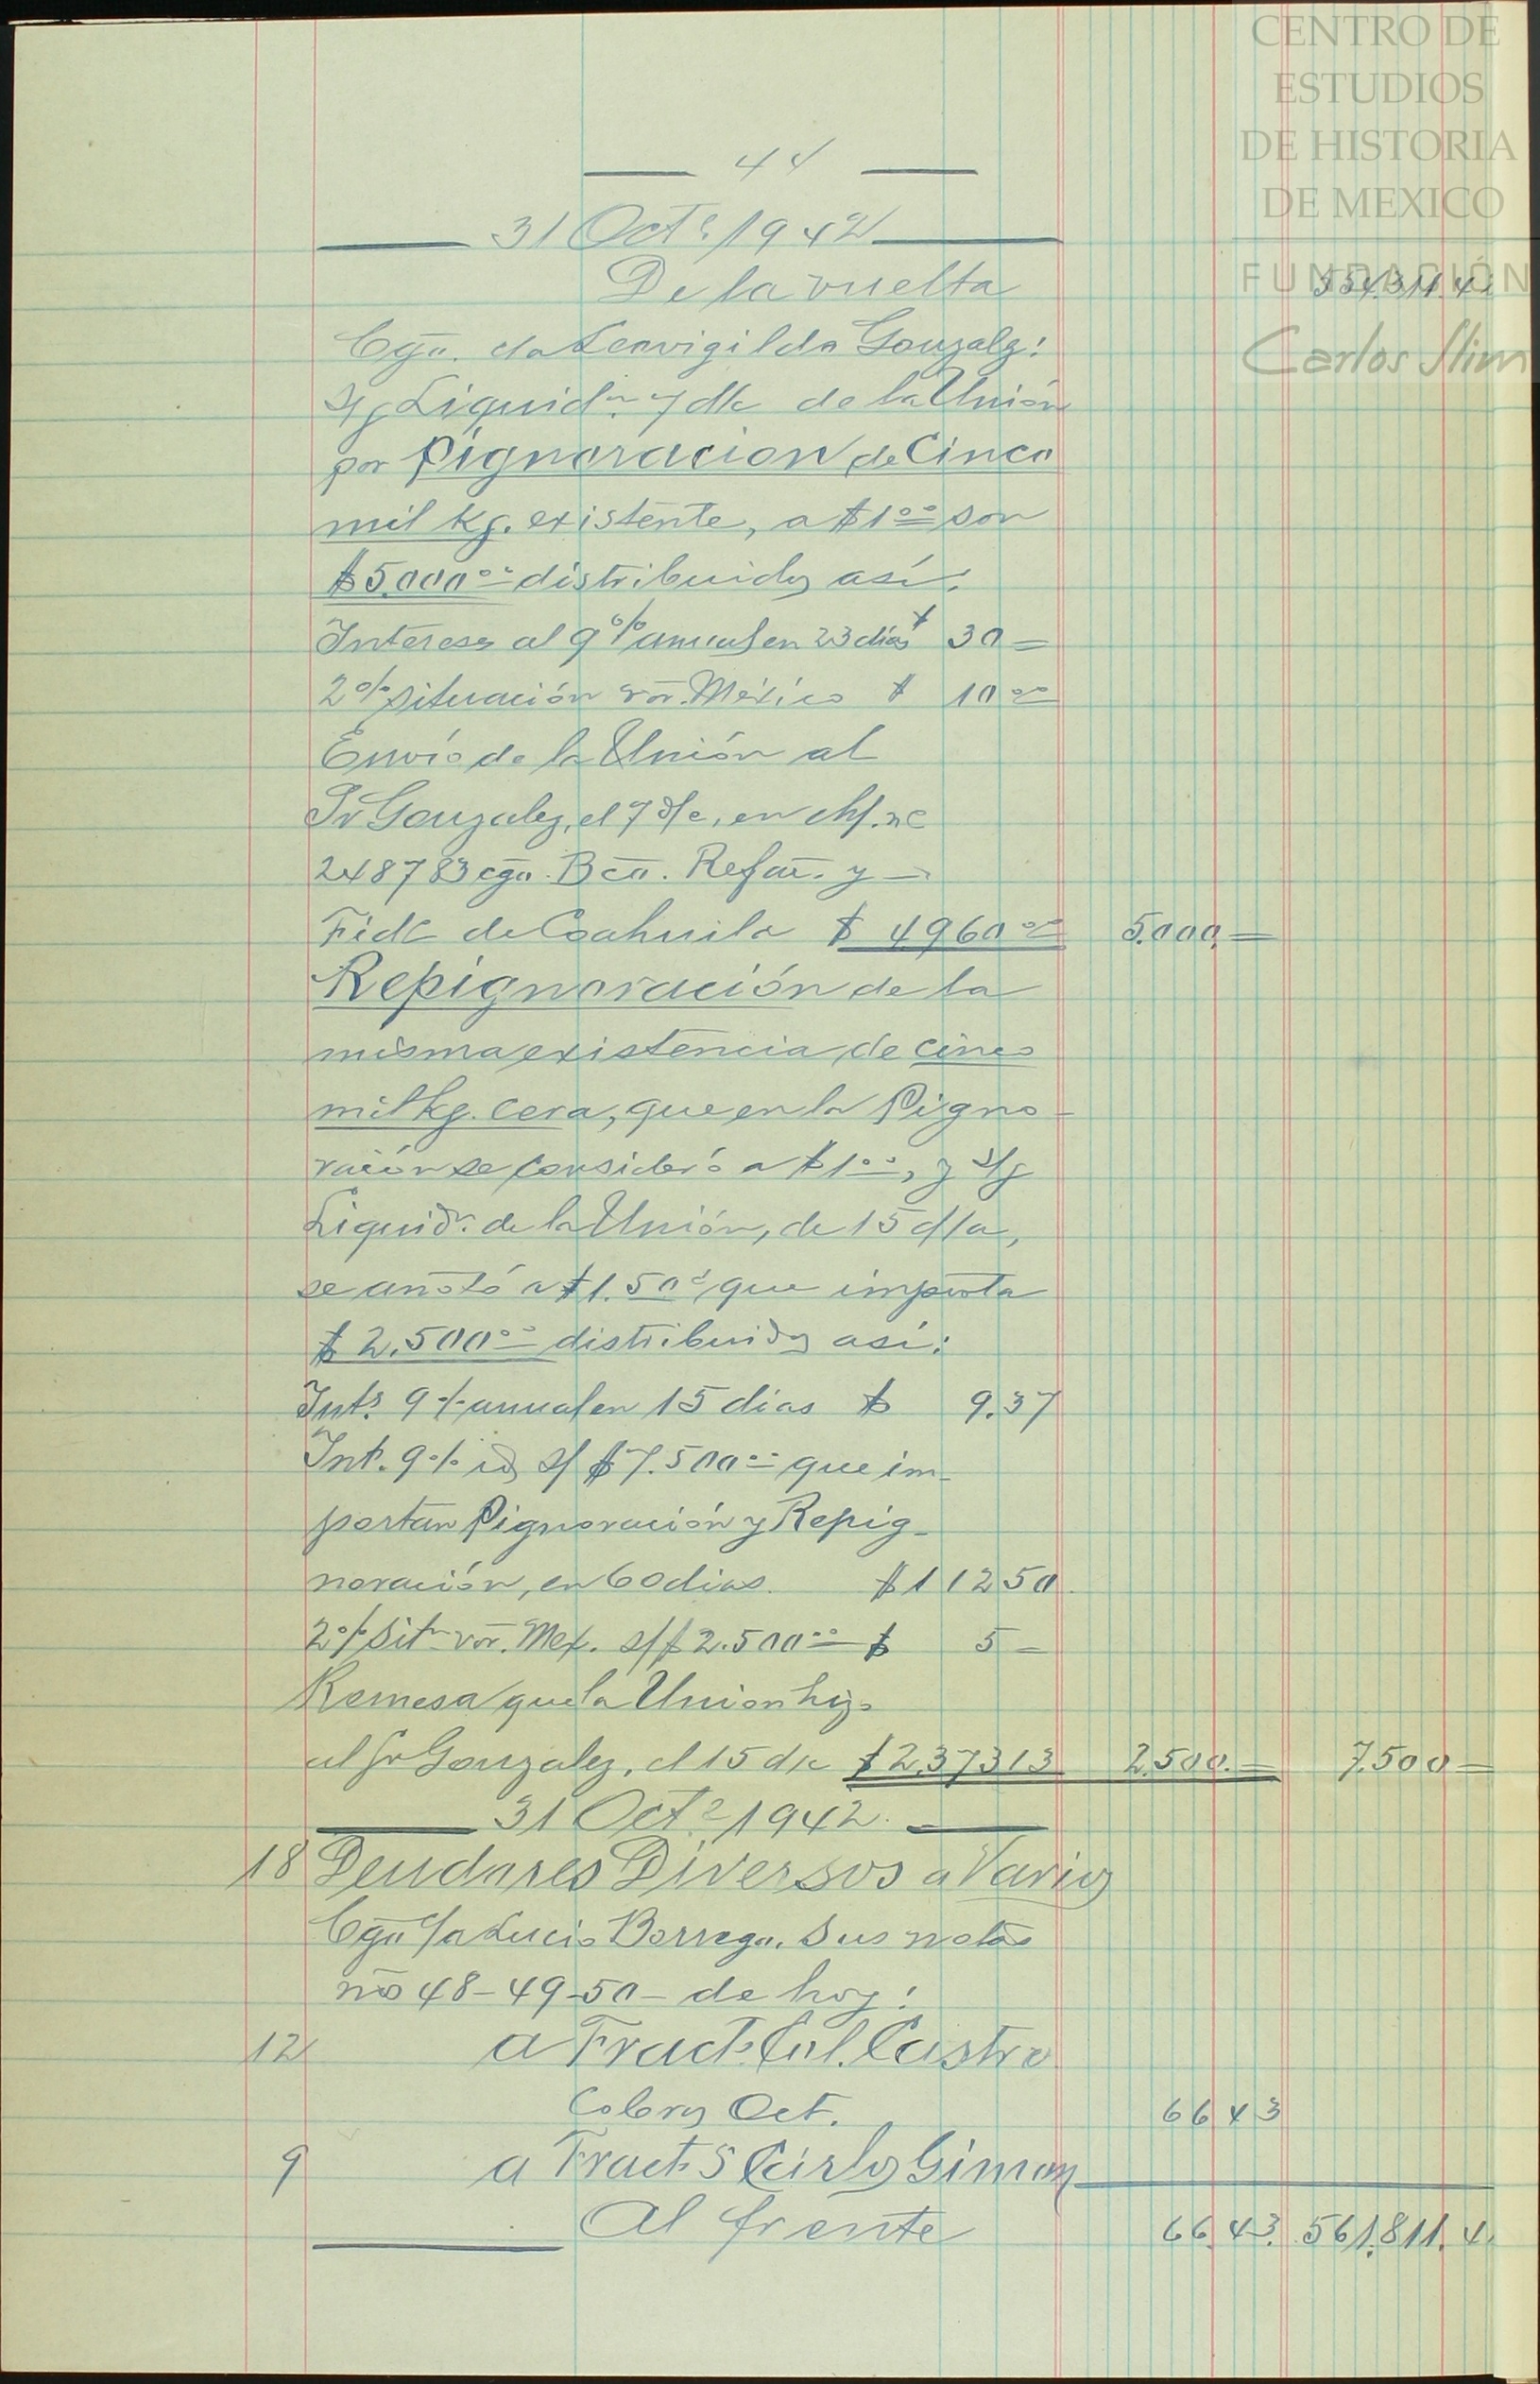 CENTRO DE
ESTUDIOS
DE HISTORIA
DE MEXICO
FUNDACIÓN
Carlos Slim
44
31 Oct.e 1942
De la vuelta 554.311.4
Cgo. da Leovigildo Gonzalez:
S/g Liquidn. 7 d/c de la Unión
por Pignoracion de Cinco
mil Kg. existente, a $1.00 son
$5.000.00 distribuidos así:
Intereses al 9% anual en 23 días $ 30=
2% situación vor. México $ 10.00
Envío de la Unión al
Sr Gonzalez, el 7 d/c, en ch/. no
248783 cgo. Bco. Refac. y
Fidc de Coahuila $ 4960.00 5.000.=
Repignoración de la
misma existencia de cinco
mil kg. cera, que en la Pigno-
ración se consideró a $1.00, y s/g
Liquidn. de la Unión, de 15 d/a,
se anotó a $1.50 que importa
$2.500.00 distribuidos así:
Ints. 9% anual en 15 días $ 9.37
Int. 9% id s/ $7.500.00 que im-
portan Pignoración y Repig-
noración, en 60 días. $112 50
2% sitn vor. Mex. s/ $2.500.00 $ 5 =
Remesa que la Union hizo
al Sr Gonzalez, el 15 d/c $2,373 13 2.500.= 7.500=
31 Oct.e 1942.
18 Deudores Diversos a Varios
Cgo c/a Lucio Borrego. Sus notas
nos 48-49-50- de hoy:
12 a Fract. Col. Castro
Cobros Oct. 66 43
9 a Fract. S Carlos Gimon
Al frente 66.43. 561.811.4